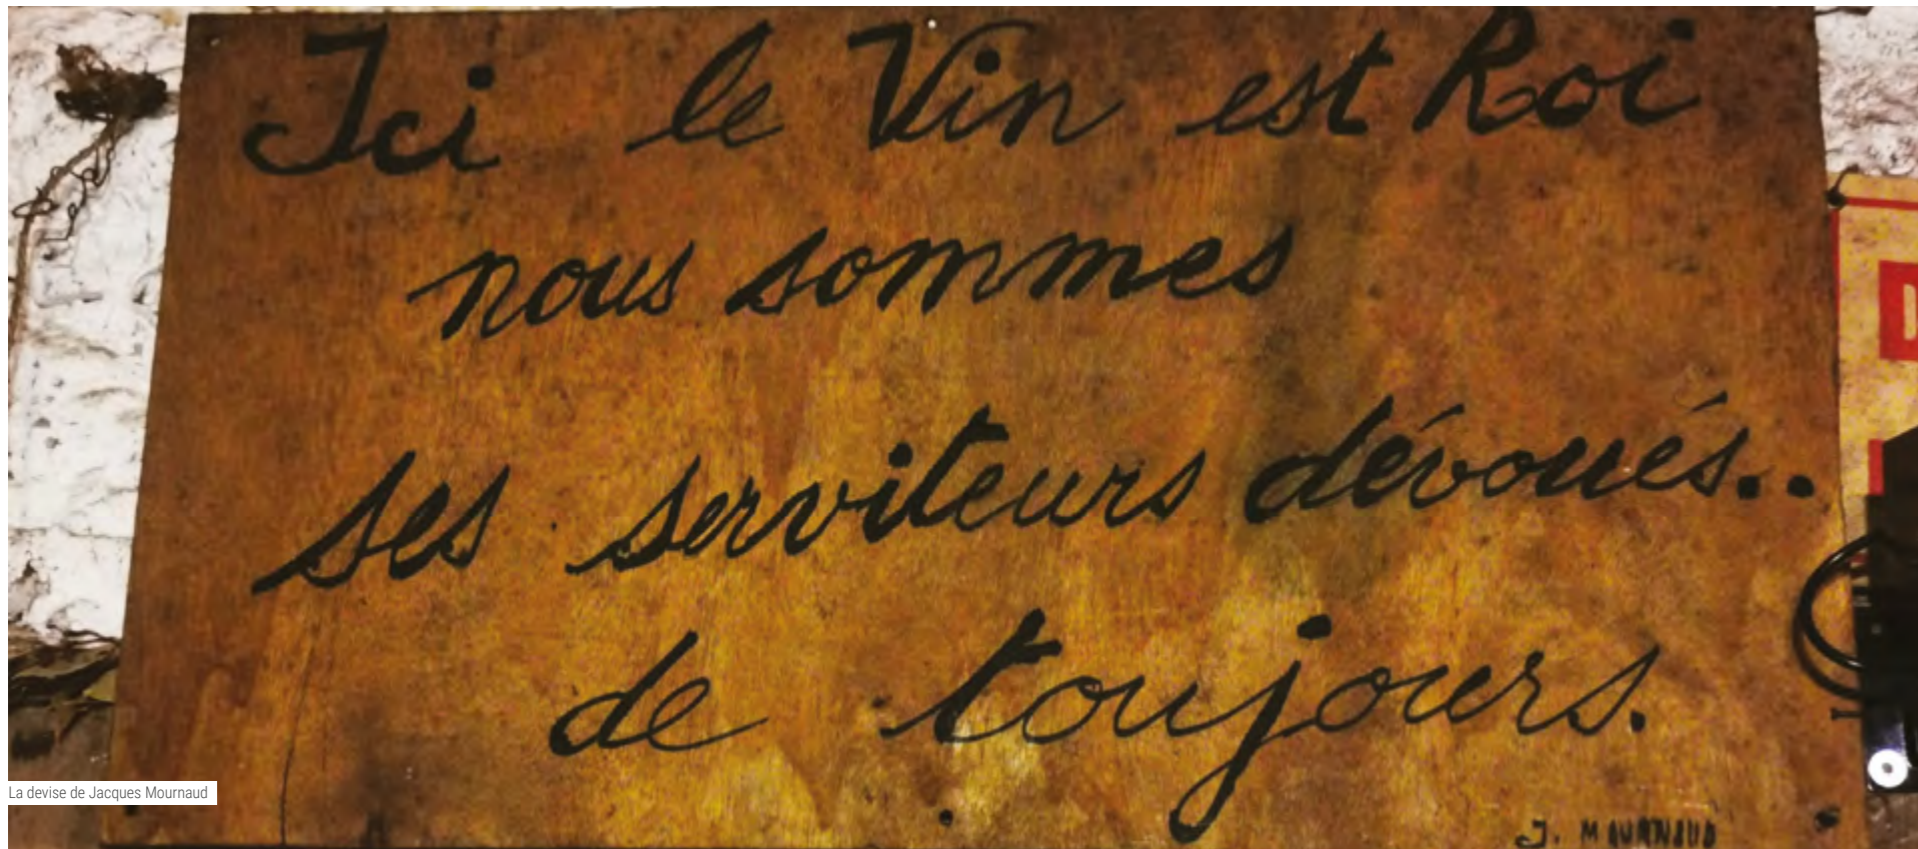 Ici le Vin est Roi
nous sommes
ses serviteurs dévoués..
de toujours.
J. MOURNAUD
La devise de Jacques Mournaud